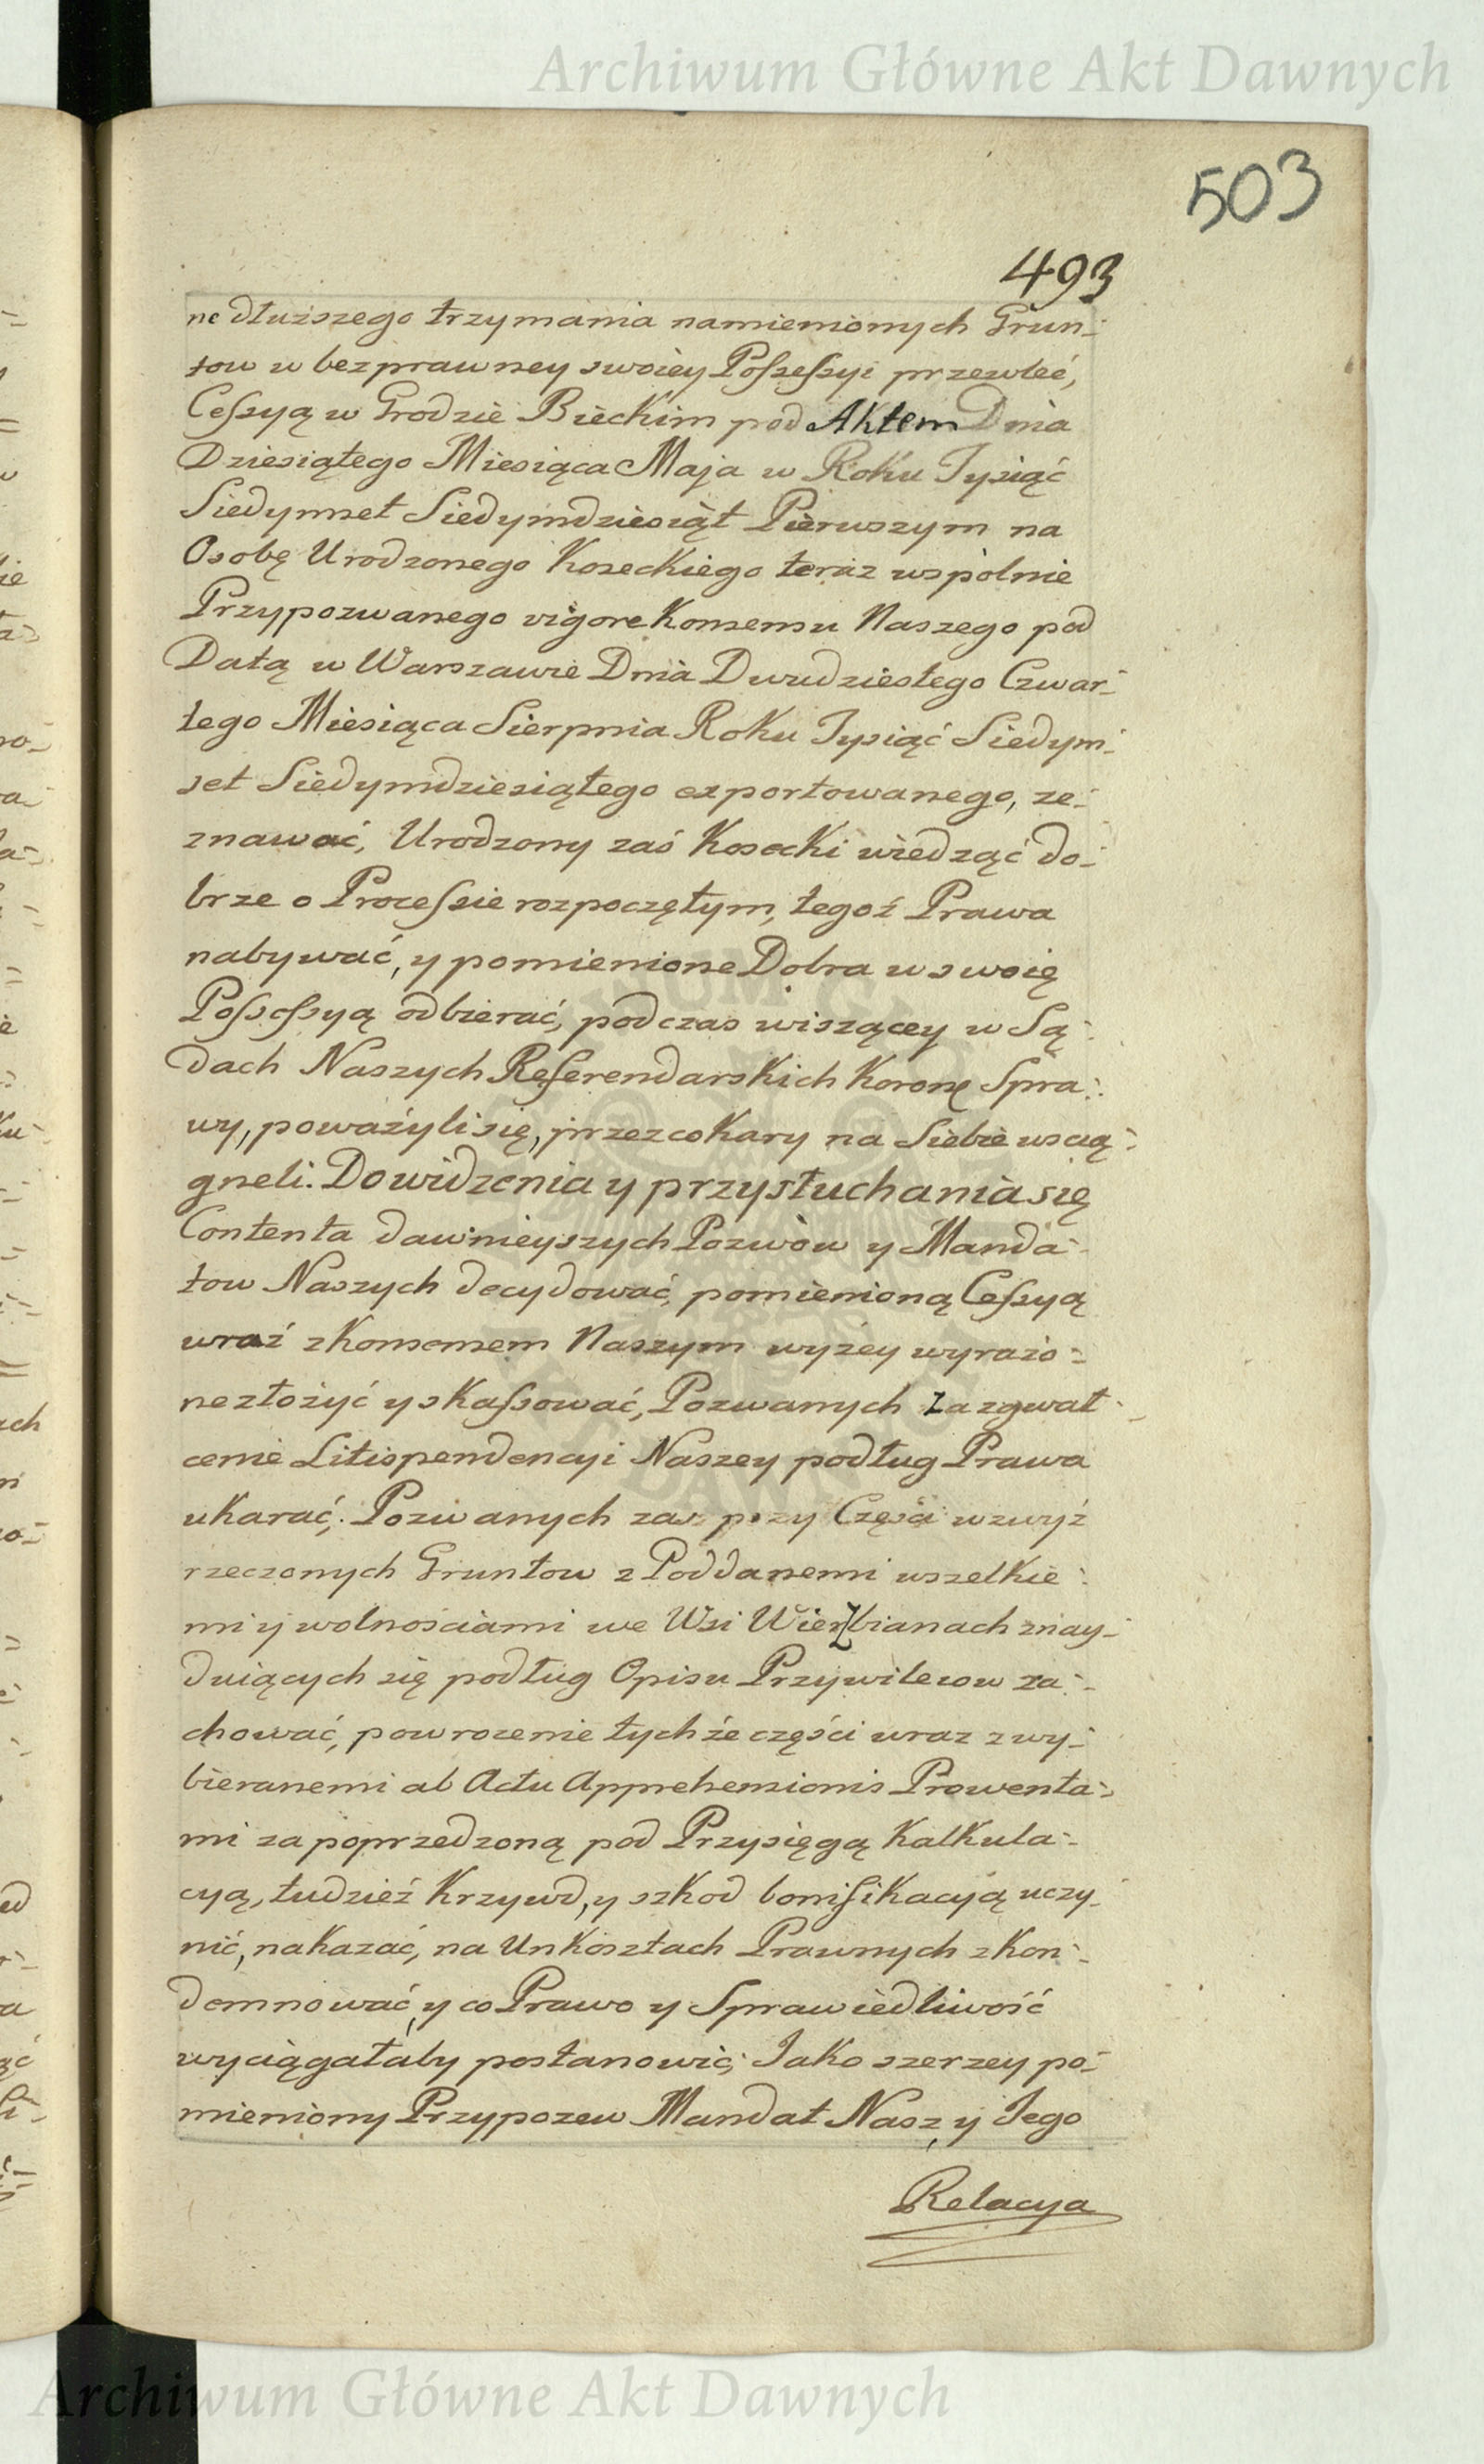 Archiwum Główne Akt Dawnych
503
493
ne dłuższego trzymania namienionych Grun-
tow w bezprawney swoiey Possessyi przewleć,
Cessyą w Grodzie Bieckim pod Aktem Dnia
Dziesiątego Miesiąca Maja w Roku Tysiąć
Siedymset Siedymdziesiąt Pierwszym na
Osobę Urodzonego Koseckiego teraz wspolnie
Przypozwanego vigore Konsensu Naszego pod
Datą w Warszawie Dnia Dwudziestego Czwar-
tego Miesiąca Sierpnia Roku Tysiąć Siedym-
set Siedymdziesiątego exportowanego, ze-
znawać, Urodzony zaś Kosecki wiedząć do-
brze o Processie rozpoczętym, tegoż Prawa
nabywać, y pomienione Dobra w swoię
Possessyą odbierać, podczas wiszącey w Są-
dach Naszych Referendarskich Koronẹ Spra-
wy, poważyli się, przez co Kary na Siebie wscią-
gneli. Do widzenia y przysłuchania się
Contenta dawnieyszych Pozwòw y Manda-
tow Naszych decydować, pomienioną Cessyą
wraź z Konsensem Naszym wyżey wyrażo-
ne złożyć y skassować, Pozwanych za zgwał-
cenie Litispendencyi Naszey podług Prawa
ukarać; Pozwanych zas przy Części wzwyż
rzeczonych Gruntow z Poddanemi wszelkie-
mi y wolnościami we Wsi Wierzbianach znay-
duiących się podług Opisu Przywileiow za-
chować, powrocenie tychże części wraz z wy-
bieranemi ab Actu Apprehensionis Prowenta-
mi za poprzedzoną pod Przysięgą Kalkula-
cyą, tudzież Krzywd, y szkod bonifikacyą uczy-
nić, nakazać, na Unkosztach Prawnych zkon-
demnować, y co Prawo y Sprawiedliwość
wyciągałaby postanowić; Jako szerzey po-
mieniony Przypozew Mandat Nasz, y Jego
Relacya
Archiwum Główne Akt Dawnych